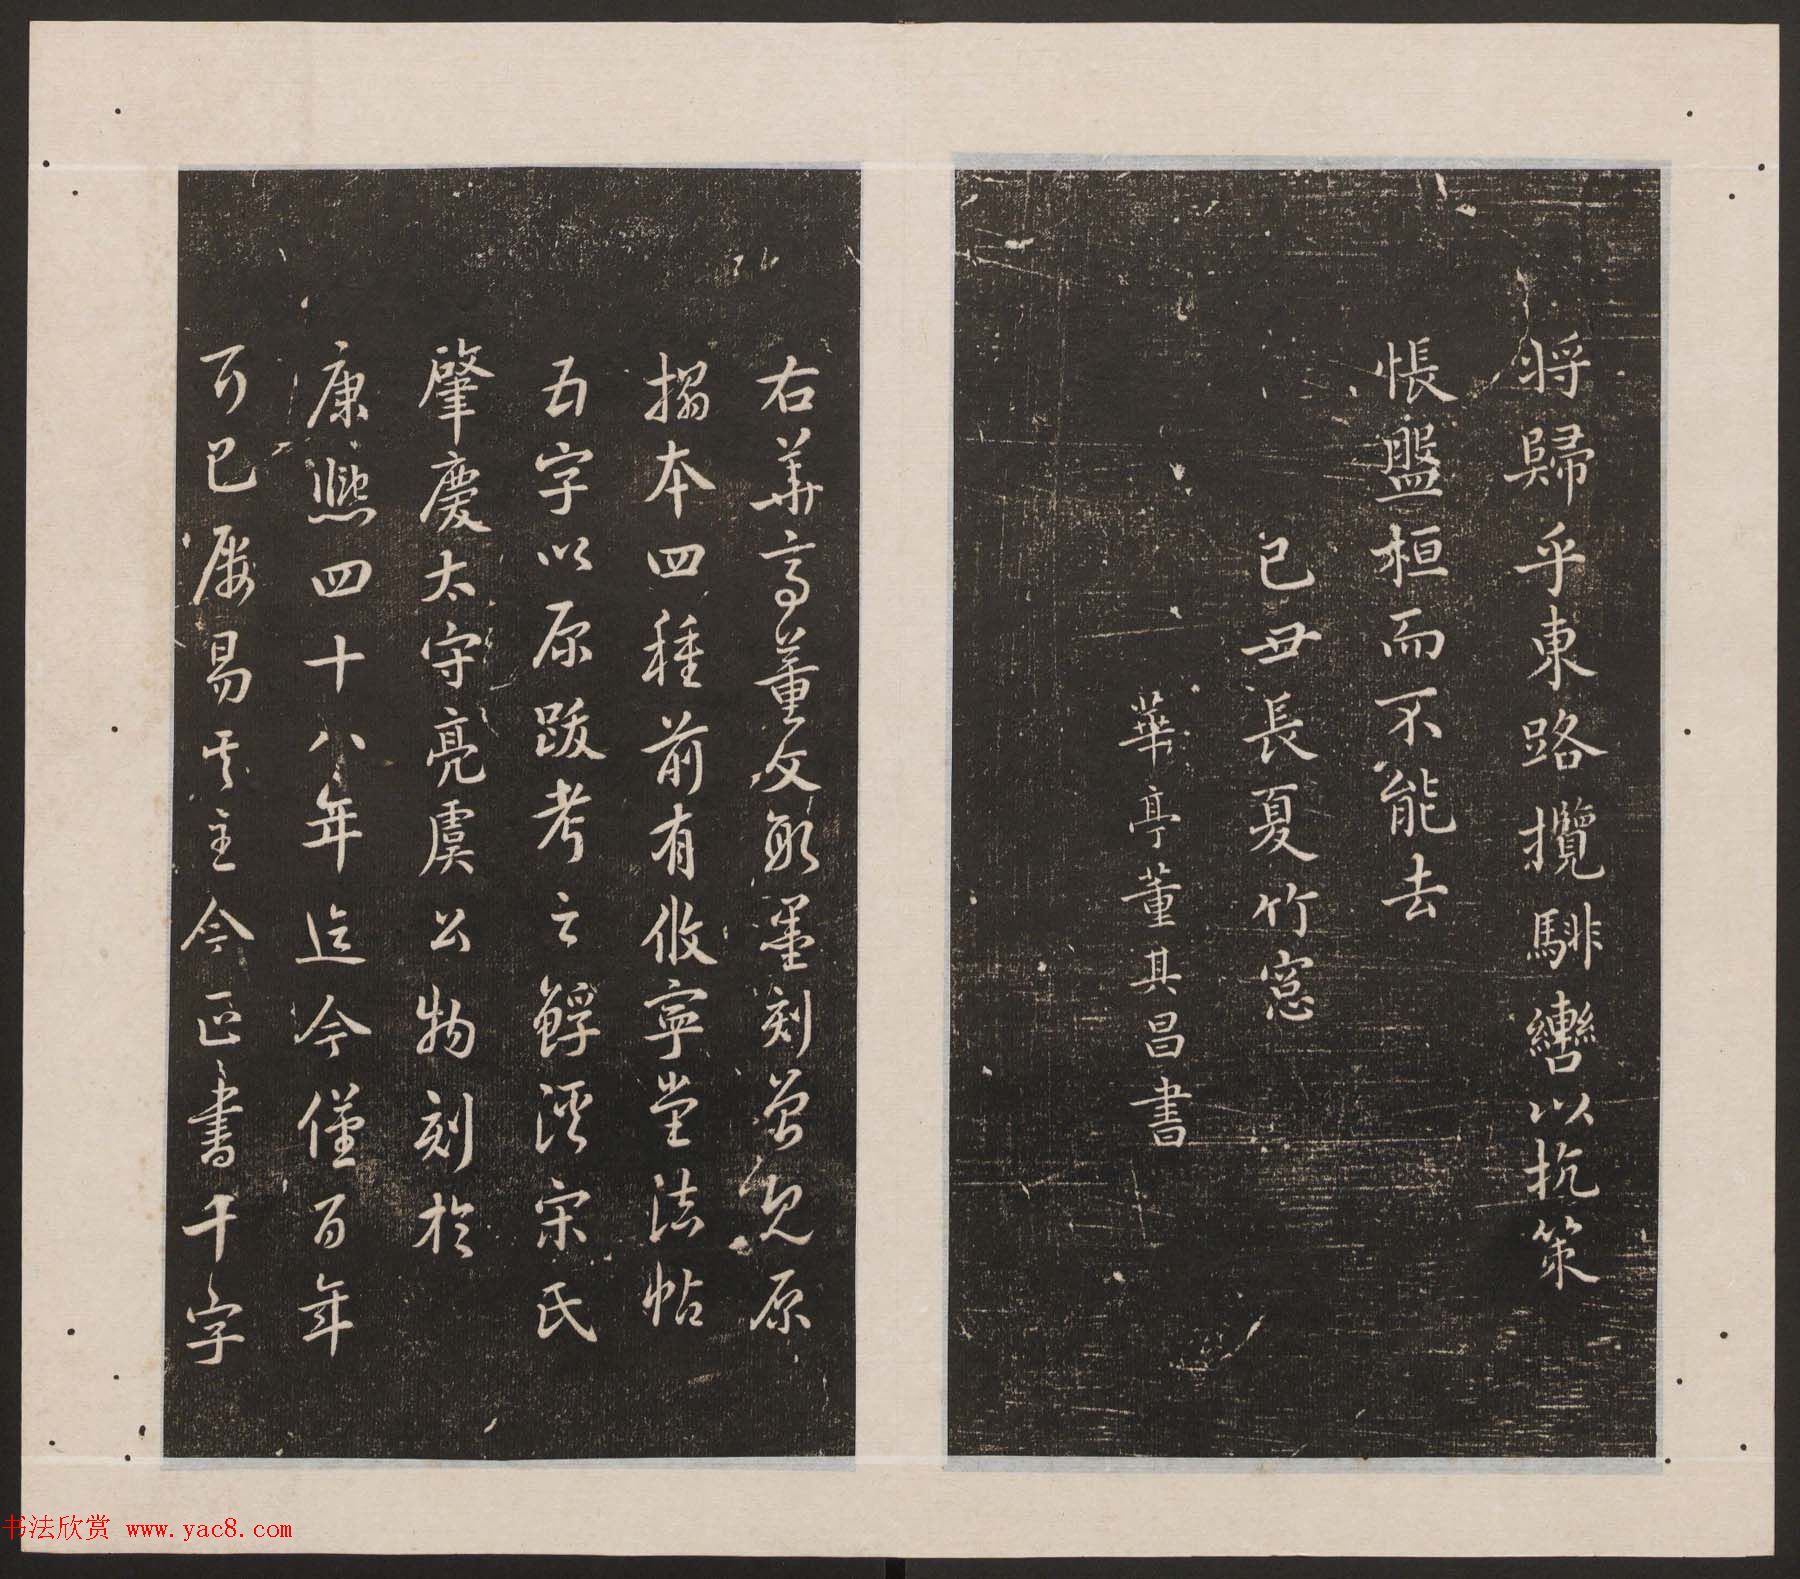 將歸乎東路攬騑轡以抗策
悵盤桓而不能去
己丑長夏竹窓
華亭董其昌書
右華亭董文敏墨刻曾見原
搨本四種前有攸寧堂法帖
五字以原跋考之溪宋氏
肇慶太守亮虞公物刻於
康熙四十八年迄今僅百年
而已屢易其主今正書千字
书法欣赏 www.yac8.com